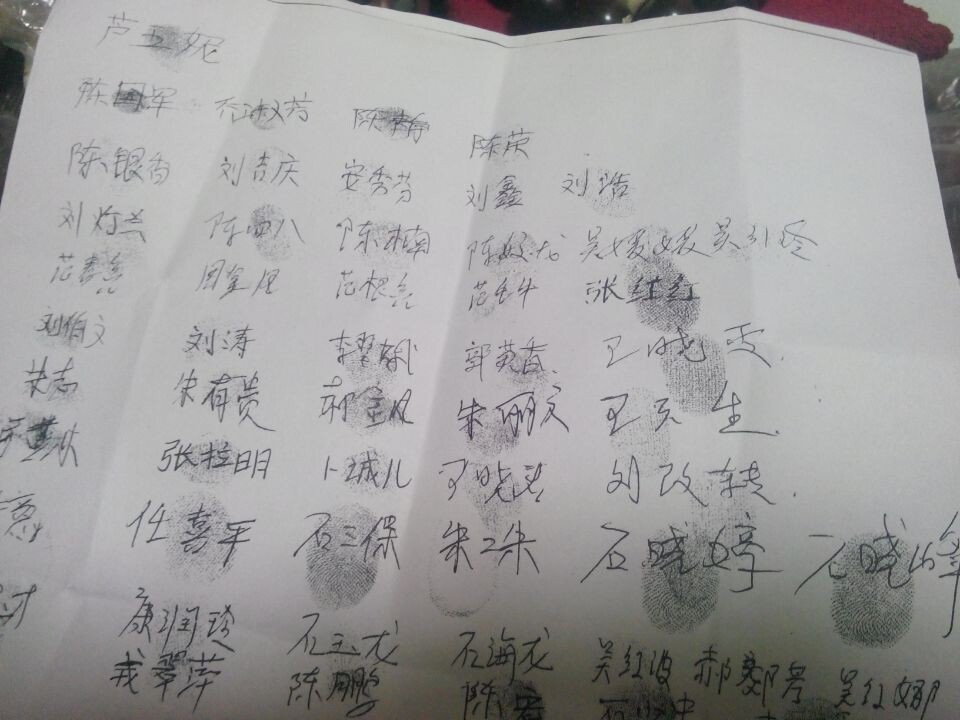 芦玉妮
陈国军 石淑芳 陈静 陈荣
陈银香 刘吉庆 安秀芬 刘鑫 刘浩
刘灯兰 陈四八 陈楠 陈姣龙 吴媛媛 吴引珍
范春亮 周金凤 范根亮 范牛牛 张红红
刘伯文 刘涛 李翠娥 郭英香 王晓雯
荣志 朱有贵 郝金凤 朱丽文 王天生
张拉明 卜城儿 王晓 刘改转
任喜军 石三保 朱二朱 石晓婷 石晓峰
康润珍 石玉龙 石海龙 吴红波 郝 吴红娜
戎翠萍 陈鹏 陈